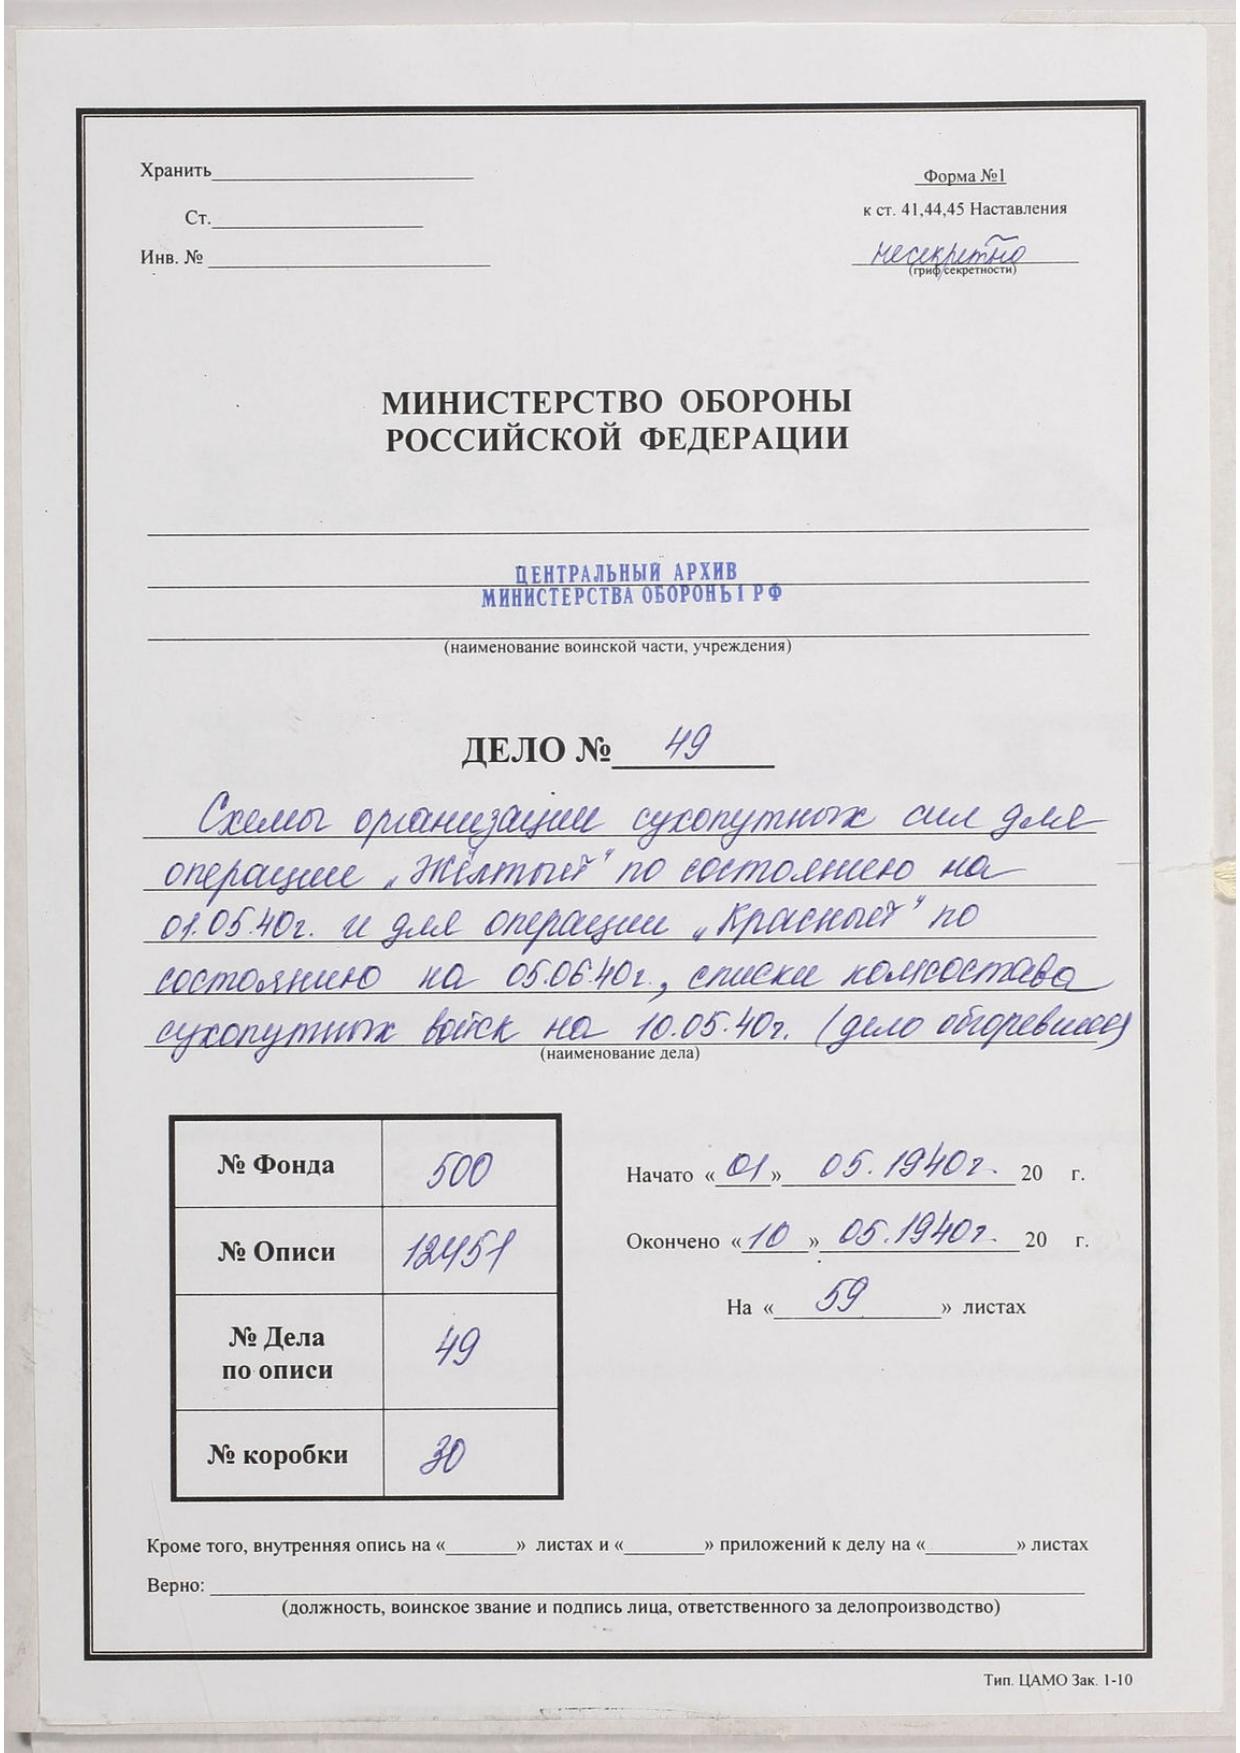 Хранить
Форма №1
Ст.
к ст. 41,44,45 Наставления
Инв. №
несекретно
(гриф секретности)
МИНИСТЕРСТВО ОБОРОНЫ
РОССИЙСКОЙ ФЕДЕРАЦИИ
ЦЕНТРАЛЬНЫЙ АРХИВ
МИНИСТЕРСТВА ОБОРОНЫ РФ
(наименование воинской части, учреждения)
ДЕЛО № 49
Схемы организации сухопутных сил для
операции „Жёлтый" по состоянию на
01.05.40г. и для операции „Красный" по
состоянию на 05.06.40г., списки комсостава
сухопутных войск на 10.05.40г. (дело обгоревшее)
(наименование дела)
№ Фонда 500
Начато «01» 05.1940г. 20 г.
№ Описи 12451
Окончено «10» 05.1940г. 20 г.
На «59» листах
№ Дела
по описи 49
№ коробки 30
Кроме того, внутренняя опись на « » листах и « » приложений к делу на « » листах
Верно:
(должность, воинское звание и подпись лица, ответственного за делопроизводство)
Тип. ЦАМО Зак. 1-10